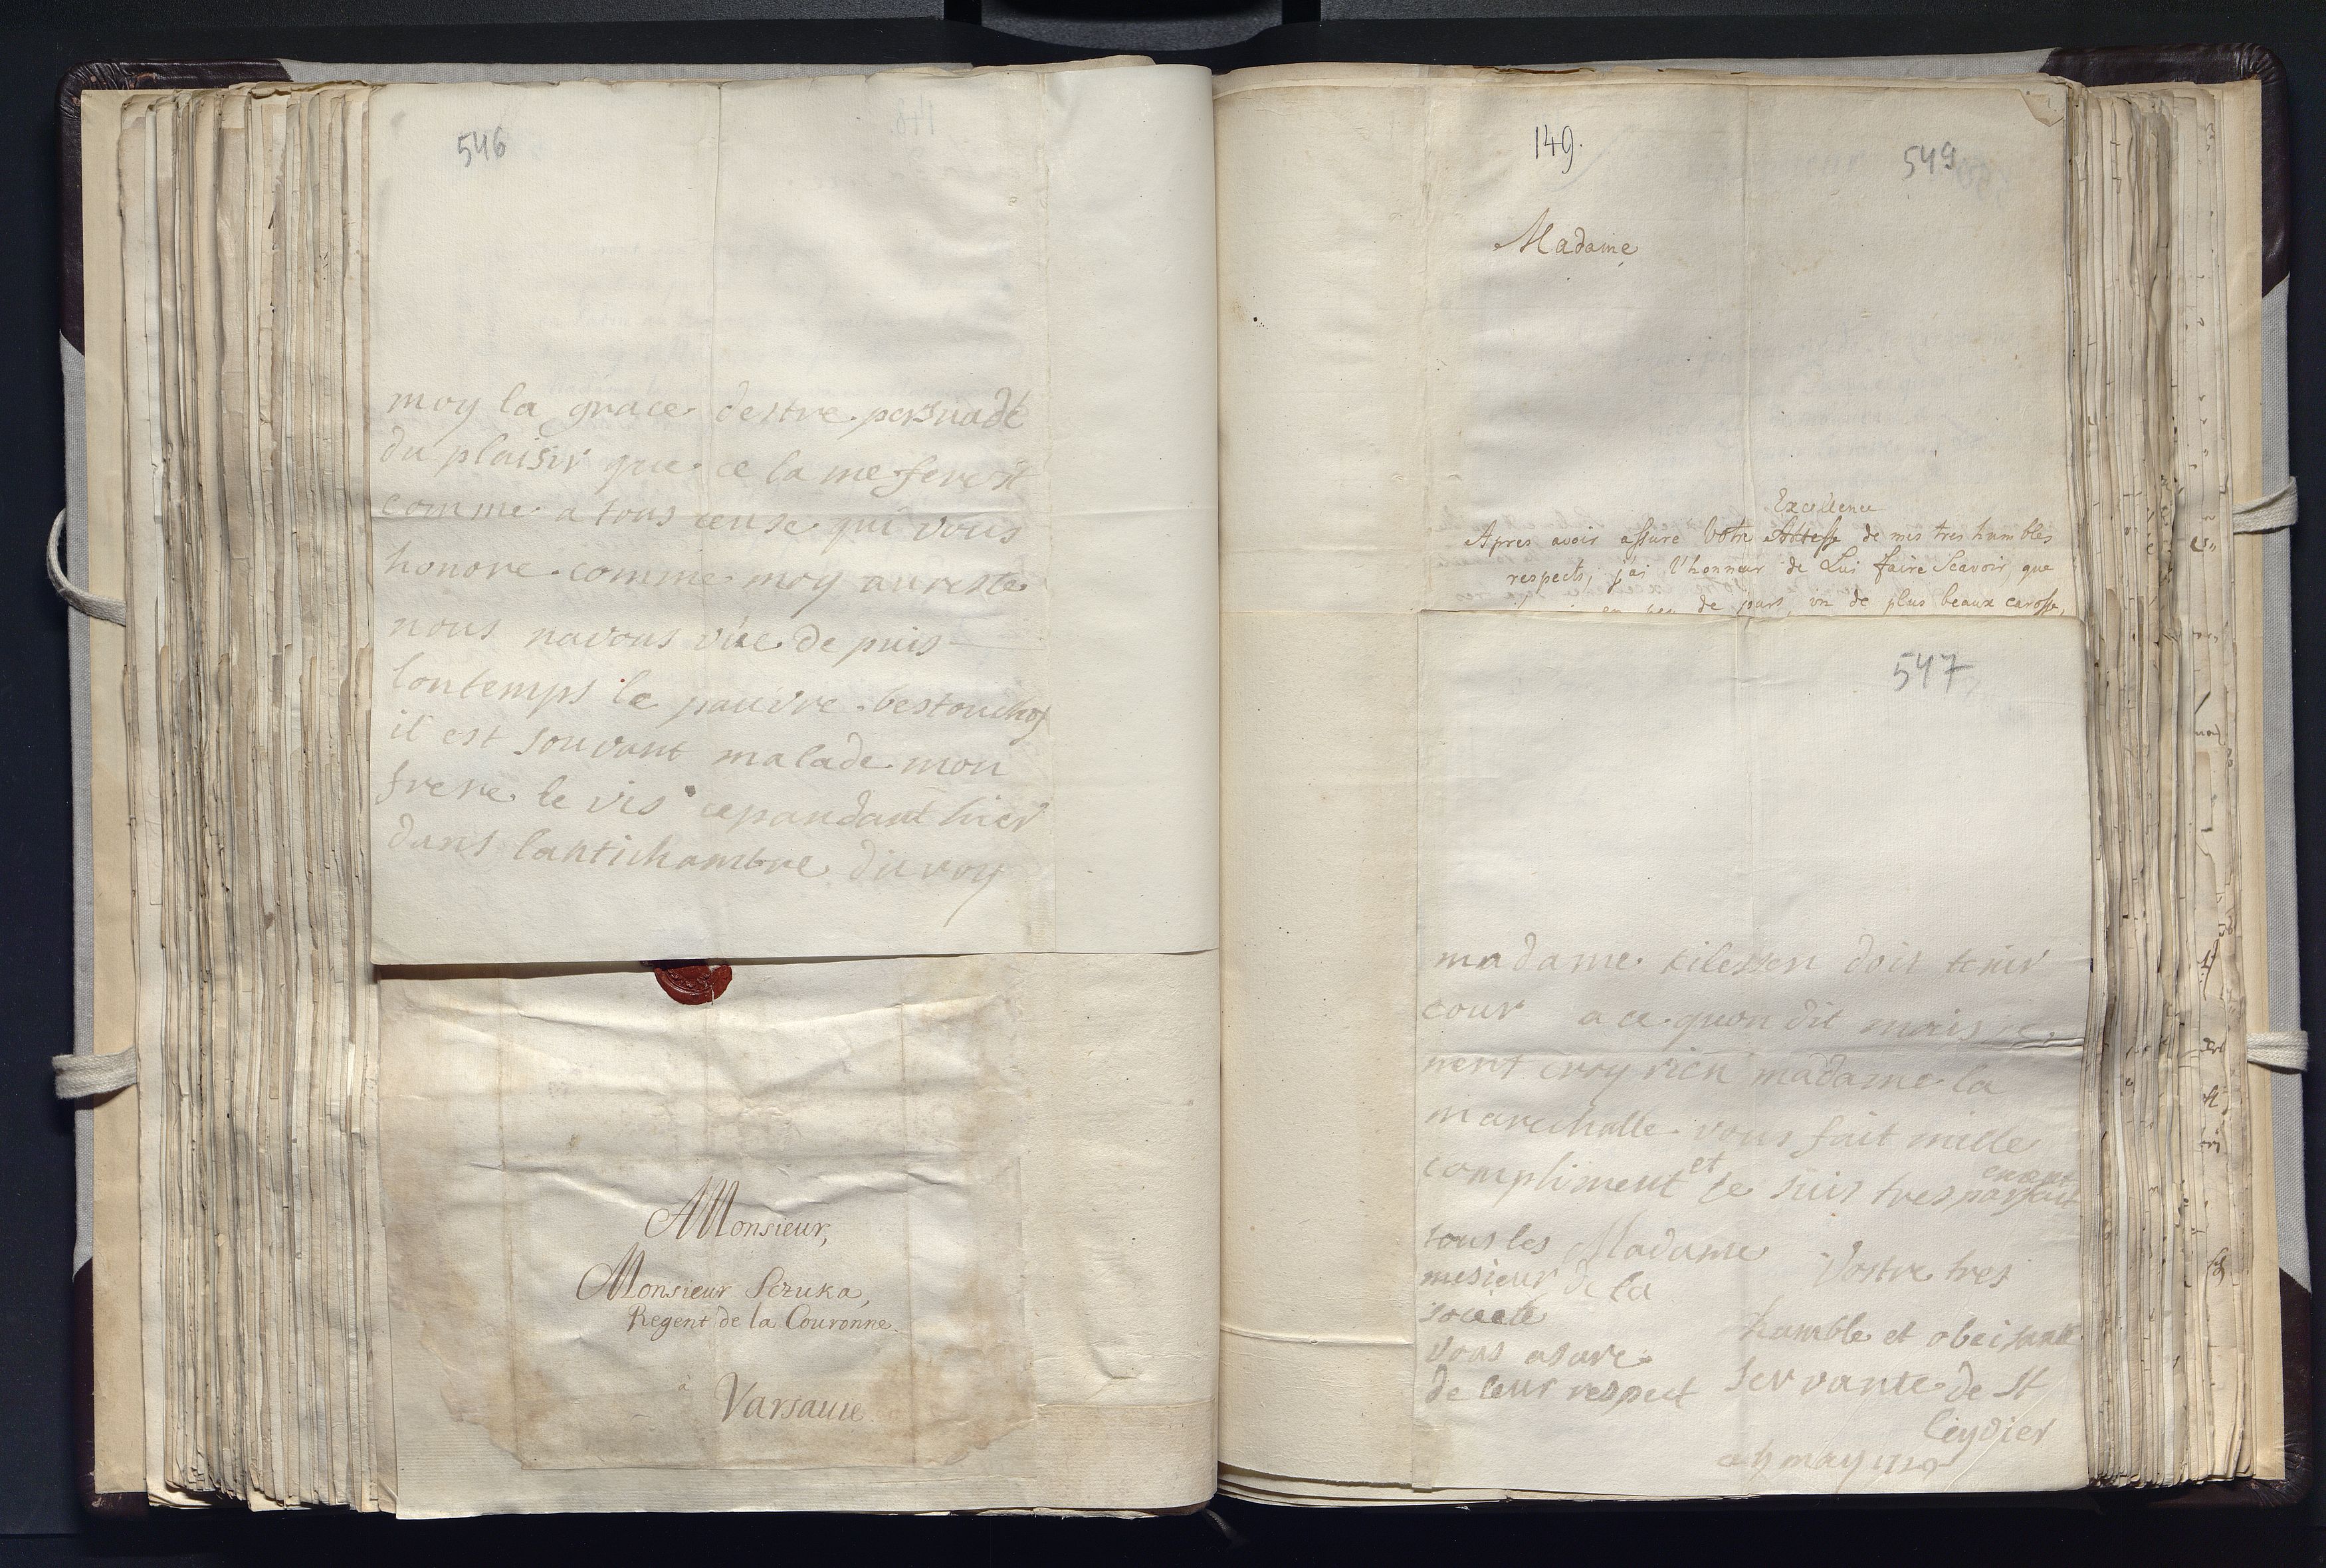 546
moy la grace destre persuadé
du plaisir que ce la me ferest
comme a tous ceuse qui vous
honore comme moy aureste
nous navous vüe de puis
lontemps le pauvre bestouchof
il est souvant malade mon
frere le vis cepandant hier
dans lantichambre du roy
A Monsieur,
Monsieur Sczuka,
Regent de la Couronne.
à
Varsauie.
149.
549
Madame
Excellence
Apres avoir assuré Votre Altesse de mes tres humbles
respects, j'ai l'honneur de Lui faire Scavoir, que
de jours, un de plus beaux carosse,
547
madame kilessen doit tenir
cour a ce quon dit mais je
nent croy rien madame la
marechalle vous fait mille
compliment et je suis tres parfait
ement
tous les Madame Vostre tres
mesieur de la
societe humble et obeisante
vous asure
de leur respect servante de St
leydier
may 1729